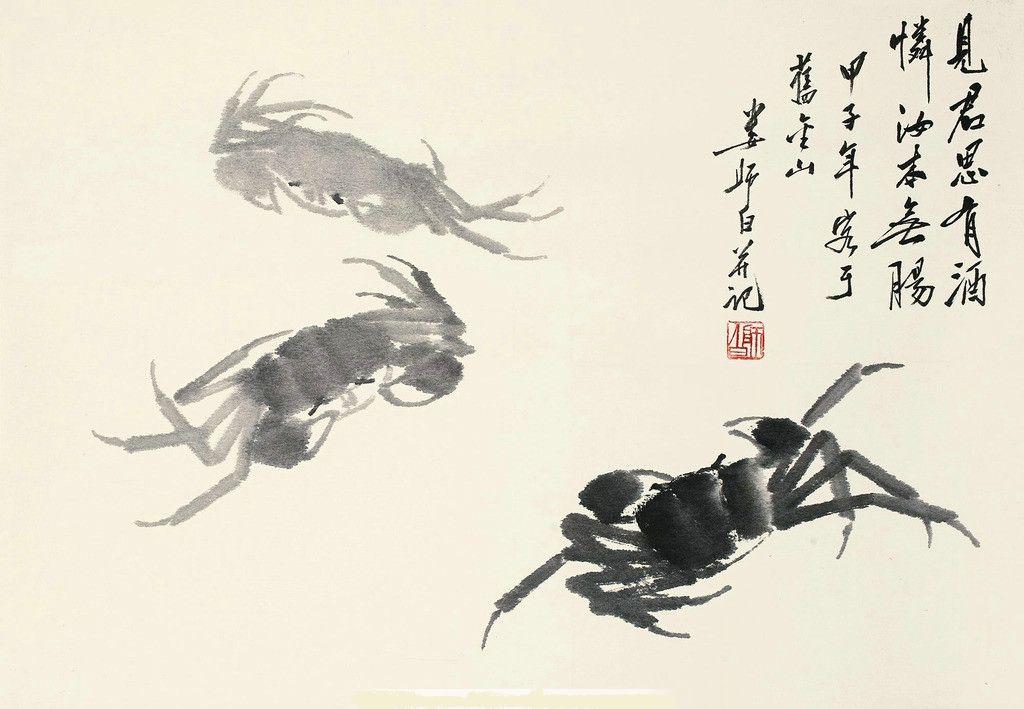 見君思有酒
憐汝本無腸
甲子年客于
舊金山
婁師白并記
師白